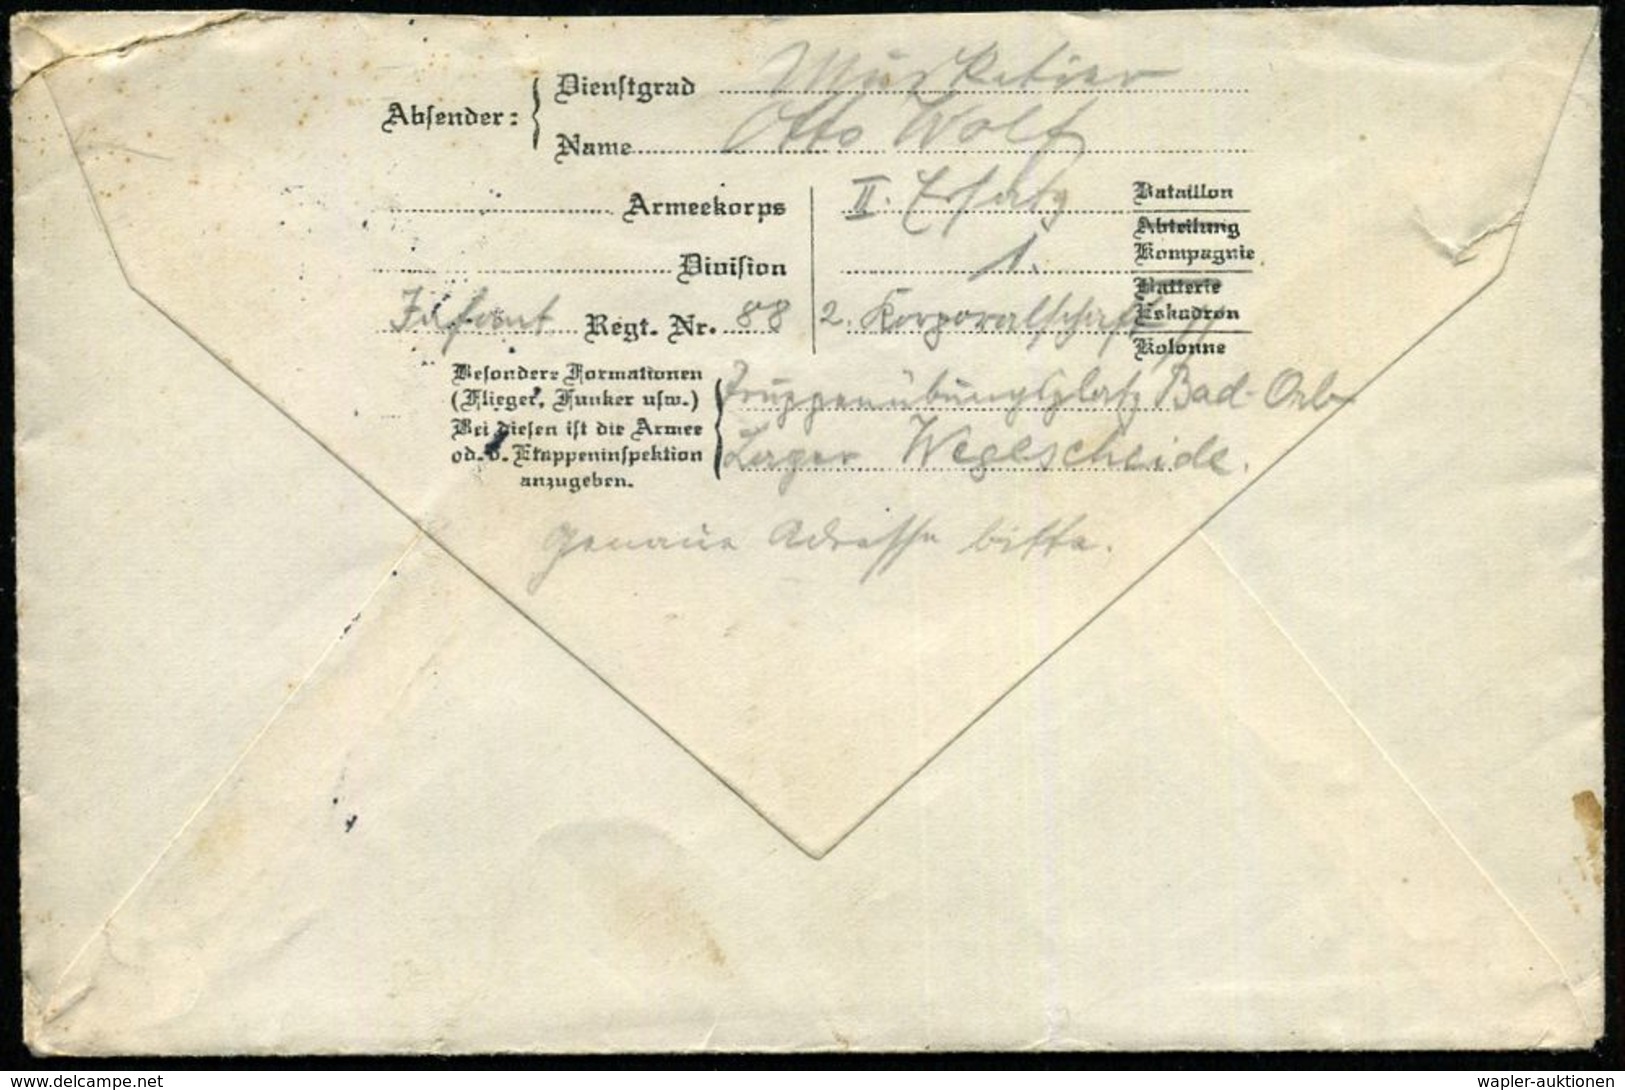 Dienstgrad Musketier
Absender:
Name Otto Wolf
Armeekorps II. Ersatz Bataillon
Abteilung
Division 1. Kompagnie
Batterie
Infant Regt. Nr. 88 2. Korporalschaft Eskadron
Kolonne
Besondere Formationen
(Flieger, Funker usw.) Truppenübungsplatz Bad-Orb
Bei diesen ist die Armee
od. d. Etappeninspektion Lager Wegescheide.
anzugeben.
Genaue Adresse bitte.
wapler-auktionen
delcampe.net